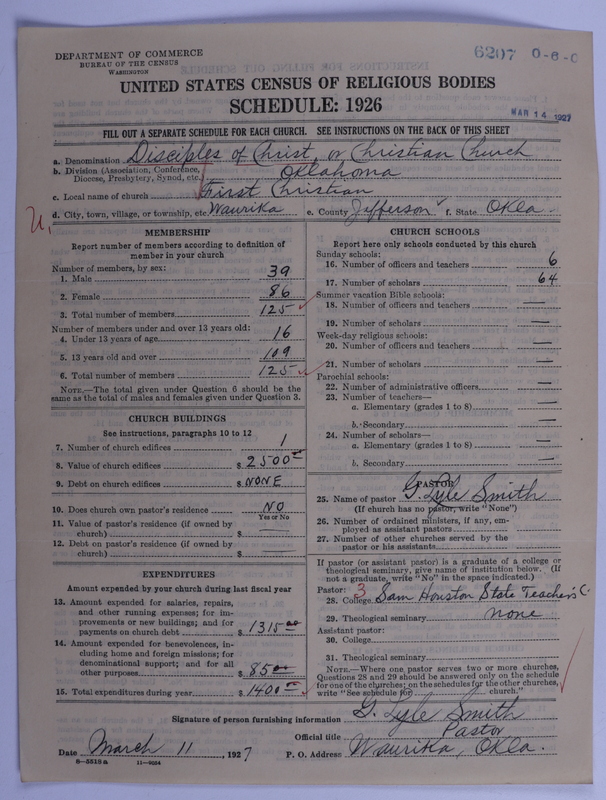 DEPARTMENT OF COMMERCE
BUREAU OF THE CENSUS
WASHINGTON
6207 0-6-0
UNITED STATES CENSUS OF RELIGIOUS BODIES
SCHEDULE: 1926
MAR 14 1927
FILL OUT A SEPARATE SCHEDULE FOR EACH CHURCH. SEE INSTRUCTIONS ON THE BACK OF THIS SHEET
a. Denomination Disciples of Christ, or Christian Church
b. Division (Association, Conference, Diocese, Presbytery, Synod, etc.) Oklahoma
c. Local name of church First Christian
d. City, town, village, or township, etc. Waurika e. County Jefferson f. State Okla.
U.
MEMBERSHIP
Report number of members according to definition of
member in your church
Number of members, by sex:
1. Male 39
2. Female 86
3. Total number of members 125
Number of members under and over 13 years old:
4. Under 13 years of age 16
5. 13 years old and over 109
6. Total number of members 125
NOTE.—The total given under Question 6 should be the
same as the total of males and females given under Question 3.
CHURCH BUILDINGS
See instructions, paragraphs 10 to 12
7. Number of church edifices 1
8. Value of church edifices $ 2500 00
9. Debt on church edifices $ NONE
10. Does church own pastor's residence NO
Yes or No
11. Value of pastor's residence (if owned by
church) $ —
12. Debt on pastor's residence (if owned by
church) $ —
EXPENDITURES
Amount expended by your church during last fiscal year
13. Amount expended for salaries, repairs,
and other running expenses; for im-
provements or new buildings; and for
payments on church debt $ 1315 00
14. Amount expended for benevolences, in-
cluding home and foreign missions; for
denominational support; and for all
other purposes $ 85 00
15. Total expenditures during year $ 1400 00
CHURCH SCHOOLS
Report here only schools conducted by this church
Sunday schools:
16. Number of officers and teachers 6
17. Number of scholars 64
Summer vacation Bible schools:
18. Number of officers and teachers —
19. Number of scholars —
Week-day religious schools:
20. Number of officers and teachers —
21. Number of scholars —
Parochial schools:
22. Number of administrative officers —
23. Number of teachers—
a. Elementary (grades 1 to 8) —
b. Secondary —
24. Number of scholars—
a. Elementary (grades 1 to 8) —
b. Secondary —
PASTOR
25. Name of pastor G. Lyle Smith
(If church has no pastor, write "None")
26. Number of ordained ministers, if any, em-
ployed as assistant pastors
27. Number of other churches served by the
pastor or his assistants
If pastor (or assistant pastor) is a graduate of a college or
theological seminary, give name of institution below. (If
not a graduate, write "No" in the space indicated.)
Pastor: 3
28. College Sam Houston State Teacher's C.
29. Theological seminary none
Assistant pastor:
30. College
31. Theological seminary
NOTE.—Where one pastor serves two or more churches,
Questions 28 and 29 should be answered only on the schedule
for one of the churches; on the schedules for the other churches,
write "See schedule for church."
Signature of person furnishing information G. Lyle Smith
Official title Pastor
Date March 11, 1927 P. O. Address Waurika, Okla.
8—5519a 11—9034